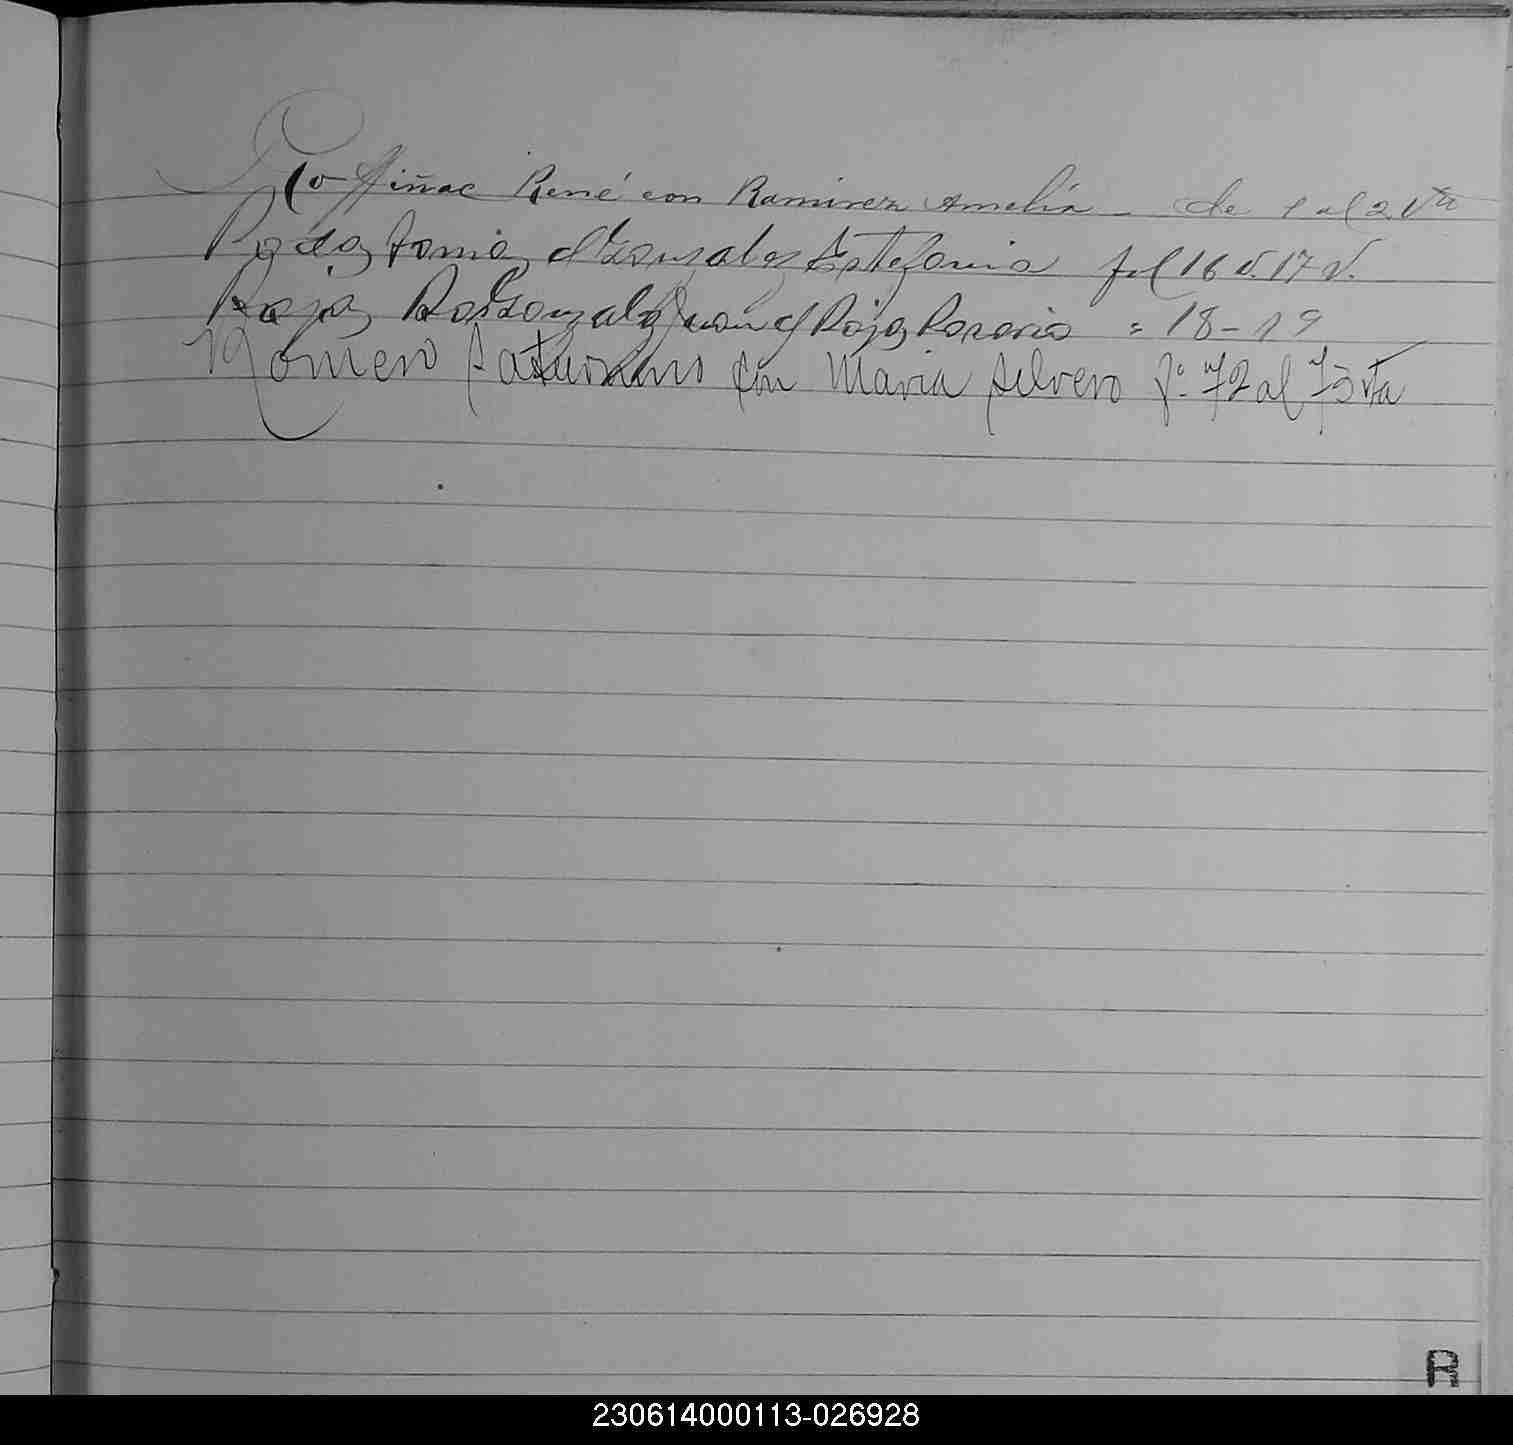 René con Ramirez Amelia - de 1 al 2 Vta
Rojas Gonzalez Estefania fol 16 v. 17 v.
Rojas Gonzalez Juan c/ Rojas Rosario = 18-19
Romero Saturnino con Maria Silvero fº 72 al 73 vta
R
230614000113-026928